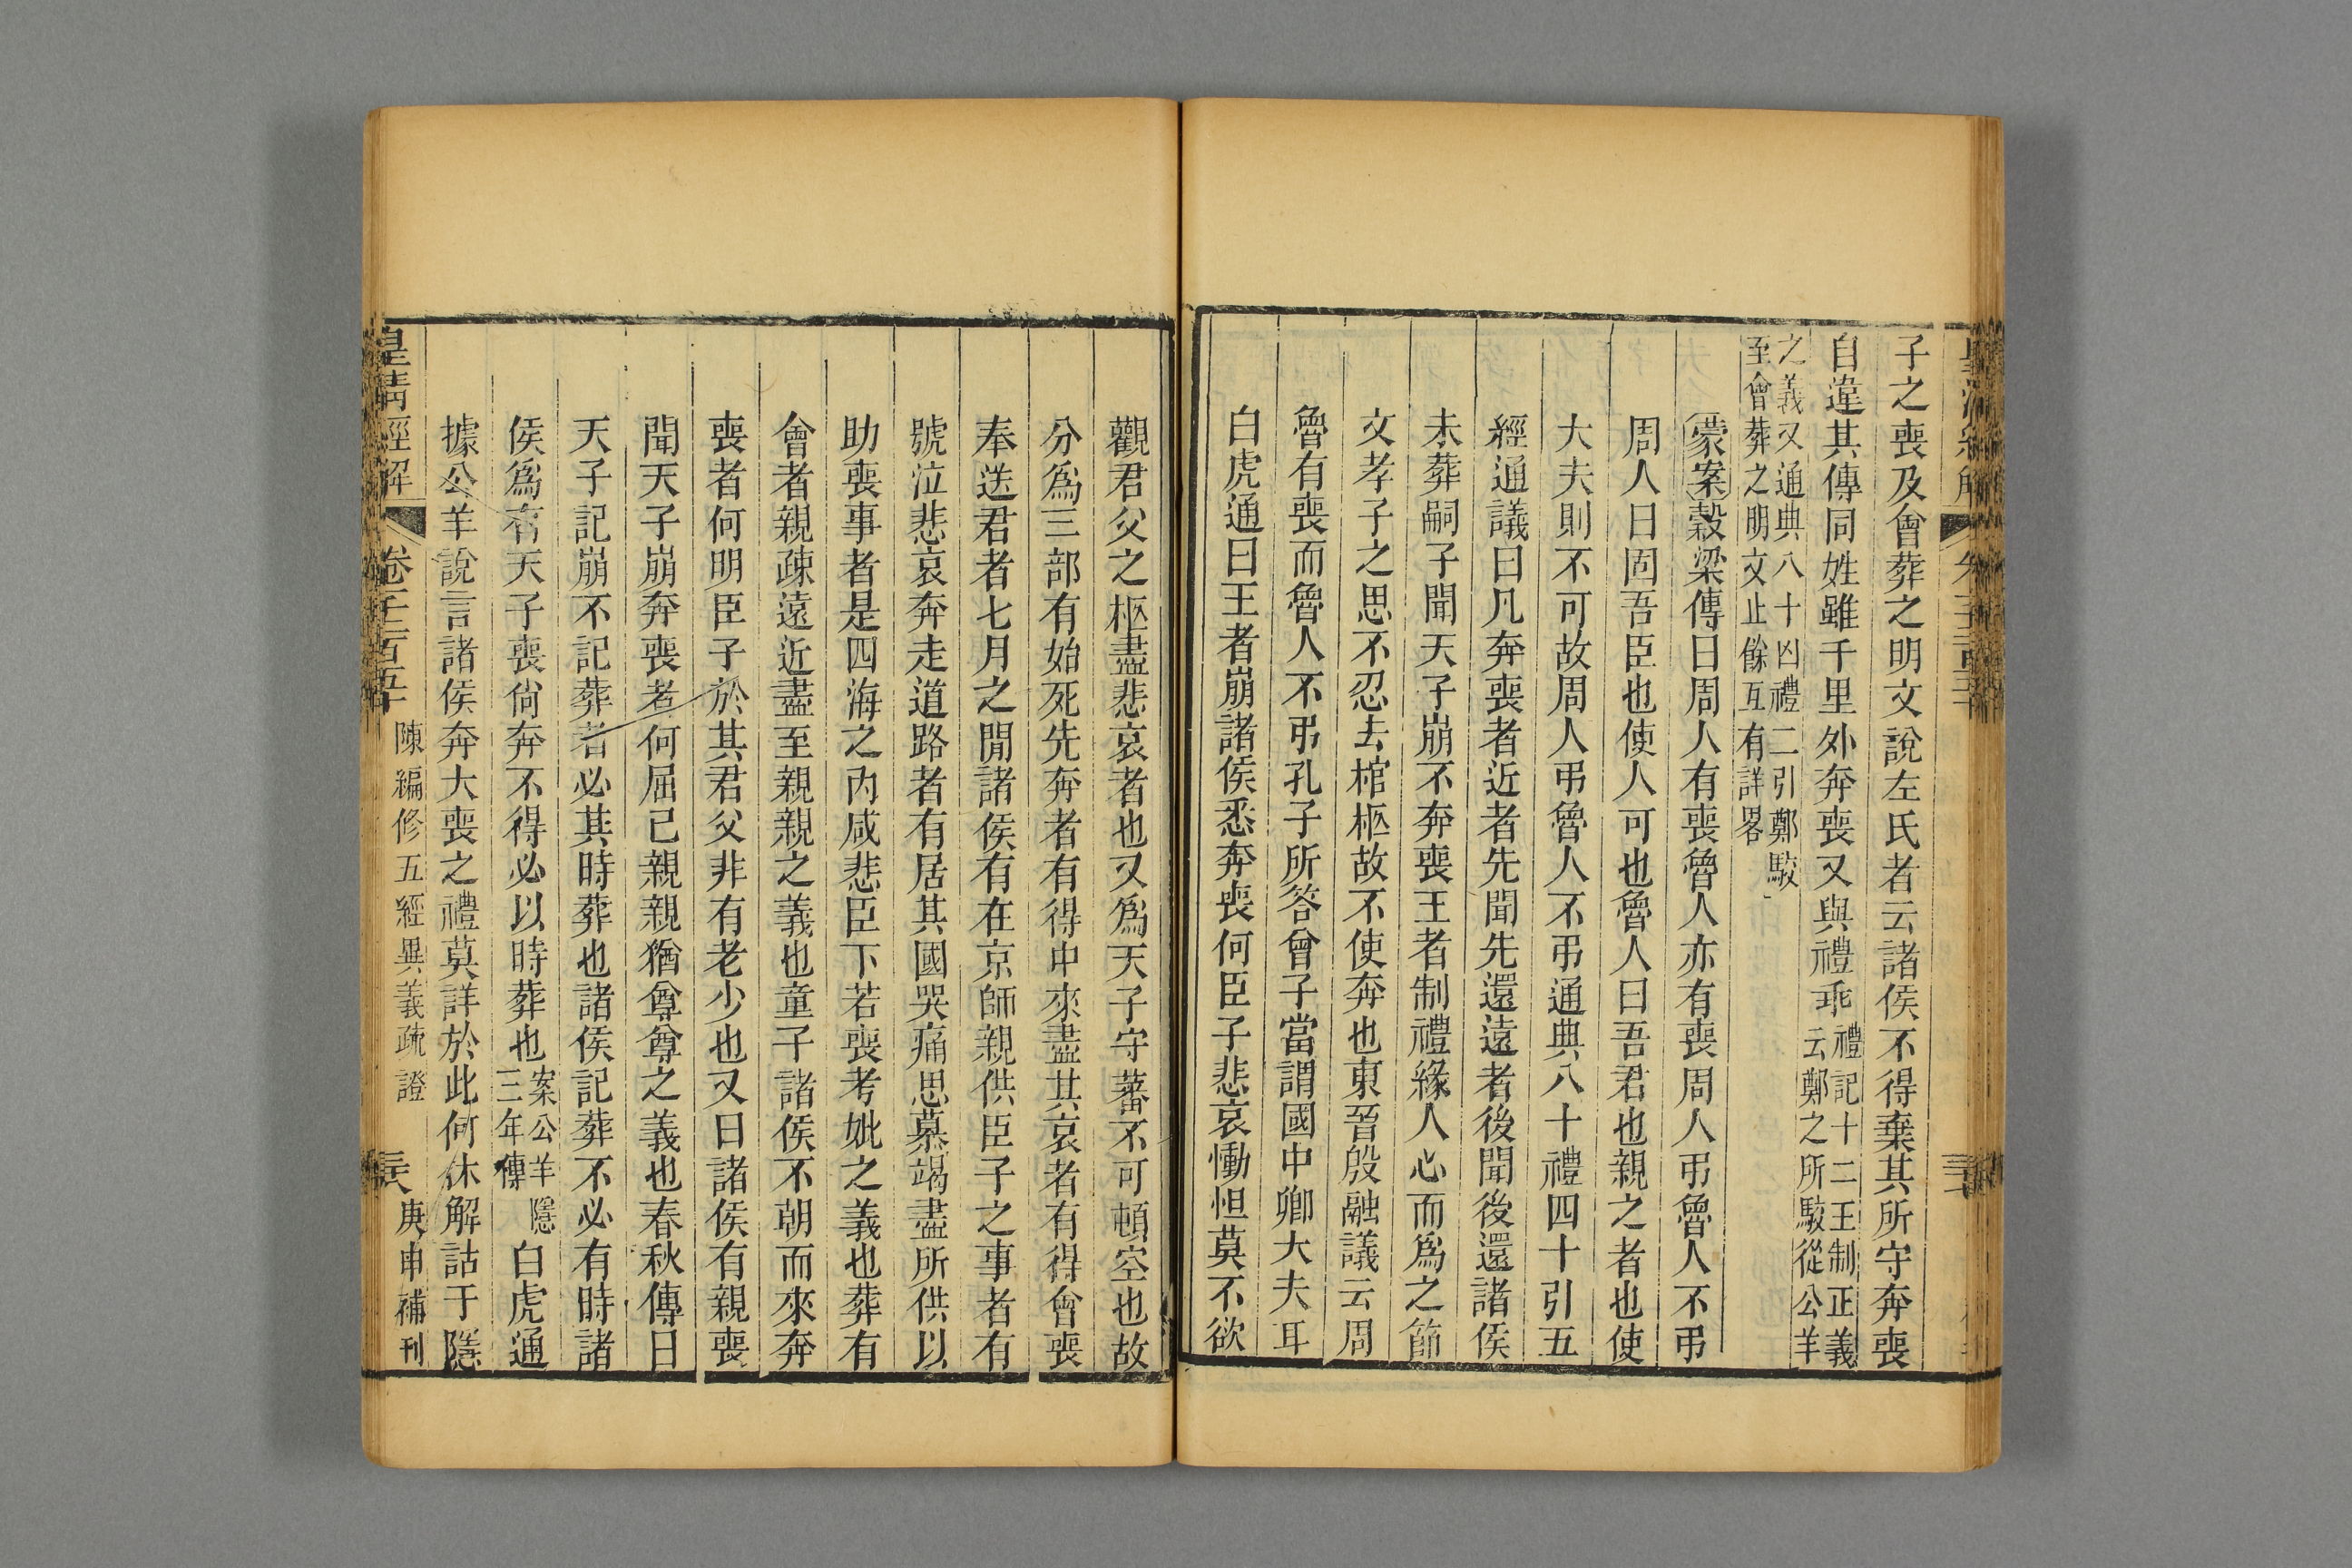 子之喪及會葬之明文說左氏者云諸侯不得棄其所守奔喪
自違其傳同姓雖千里外奔喪又與禮乖禮記十二王制正義
云鄭之所駮從公羊
之義又通典八十凶禮二引鄭駮
至會葬之明文止餘互有詳畧
蒙案榖梁傳曰周人有喪魯人亦有喪周人弔魯人不弔
周人曰固吾臣也使人可也魯人曰吾君也親之者也使
大夫則不可故周人弔魯人不弔通典八十禮四十引五
經通議曰凡奔喪者近者先聞先還遠者後聞後還諸侯
未葬嗣子聞天子崩不奔喪王者制禮緣人心而爲之節
文孝子之思不忍去棺柩故不使奔也東晉殷融議云周
魯有喪而魯人不弔孔子所答曾子當謂國中卿大夫耳
白虎通曰王者崩諸侯悉奔喪何臣子悲哀慟怛莫不欲
觀君父之柩盡悲哀者也又爲天子守蕃不可頓空也故
分爲三部有始死先奔者有得中來盡其哀者有得會喪
奉送君者七月之閒諸侯有在京師親供臣子之事者有
號泣悲哀奔走道路者有居其國哭痛思慕竭盡所供以
助喪事者是四海之內咸悲臣下若喪考妣之義也葬有
會者親疎遠近盡至親親之義也童子諸侯不朝而來奔
喪者何明臣子於其君父非有老少也又曰諸侯有親喪
聞天子崩奔喪者何屈己親親猶尊尊之義也春秋傳曰
天子記崩不記葬者必其時葬也諸侯記葬不必有時諸
侯爲有天子喪尙奔不得必以時葬也案公羊隱
三年傳白虎通
據公羊說言諸侯奔大喪之禮莫詳於此何休解詁于隱
皇清經解
卷千二百五十
陳編修五經異義疏證
庚申補刊